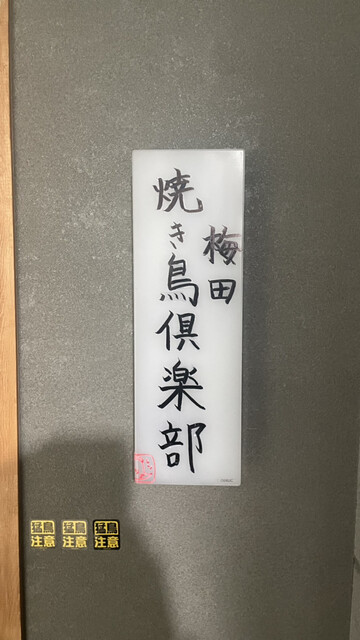 梅田
焼き鳥倶楽部
猛鳥
注意
猛鳥
注意
猛鳥
注意